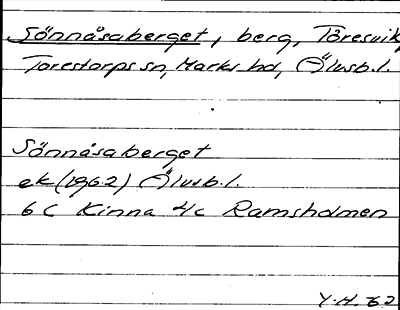 Sönnåsaberget, berg, Töresvik,
Torestorps sn, Marks hd, Älvsb.l.
Sönnåsaberget
ek (1962) Älvsb.l.
6 C Kinna 4/c Ramsholmen
Y.H. 62